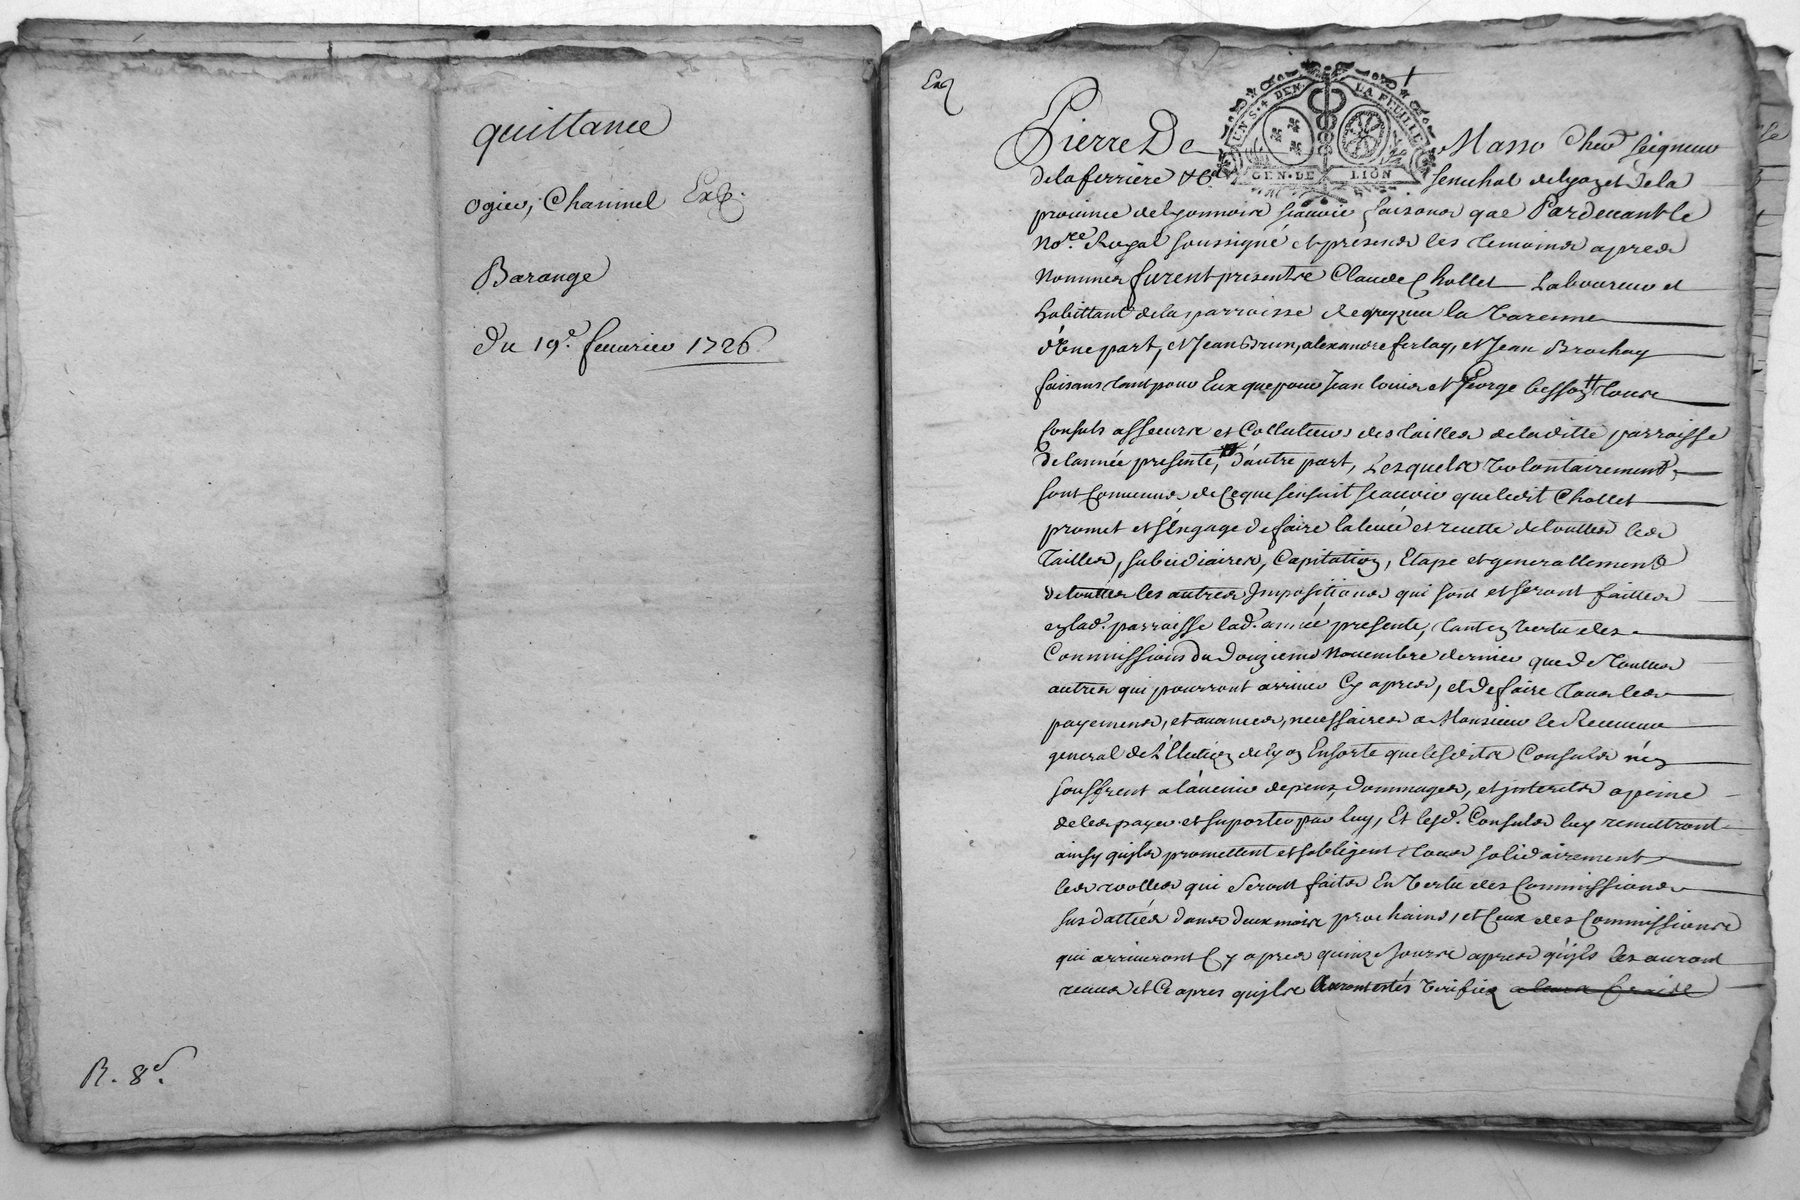 quittance
ogier, Charmel Exp.
Barange
du 19e. feuurier 1726.
R. 8s.
Exp
UN S. 4 DEN. LA FEUILLE
GEN. DE LION
Pierre De Masso Cheur Seigneur
de la ferriere &c Senechal de Lyon et de la
prouince de Lyonnois scauoir faisons que Pardeuant le
Nore. Royal soussigné et presens les temoins apres
Nommés furent presents Claude Chollet Laboureur et
habittant de la parroisse de la Varenne
d'Une part, et Jean Brun, alexandre ferlay, et Jean Brochay
faisans tant pour Eux que pour Jean louis et George besson tous
Consuls asseeurs et Collecteurs des tailles de la ditte parroisse
de l'année presente, d'autre part, Lesquels Volontairement
sont Conuenus de Ce que s'ensuit scauoir que ledit Chollet
promet et s'Engage de faire la leuée et recette de touttes les
Tailles, subcidiaires, Capitation, Etape et generallement
de touttes les autres Impositions qui sont et seront faittes
en lad. parroisse lad. année presente, tant en Vertu des
Commissions du douzieme Nouembre dernier que de touttes
autres qui pourront arriuer Cy apres, et de faire tous les
payemens, et auances, necessaires a Monsieur le Receueur
general de L'Election de Lyon Ensorte que lesdits Consuls n'en
souffrent a l'auenir depens, dommages, et interets a peine
de les payer et suporter par luy, Et lesd. Consuls luy remettront
ainsy qu'ils promettent et s'obligent tous solidairement
les roolles qui seront faits En Vertu des Commissions
susdattées dans deux mois prochains, et Ceux des Commissions
qui arriueront Cy apres quinze Jours apres qu'ils les auront
receus et Ce apres qu'ils auront estés Verifiez a leurs fraise